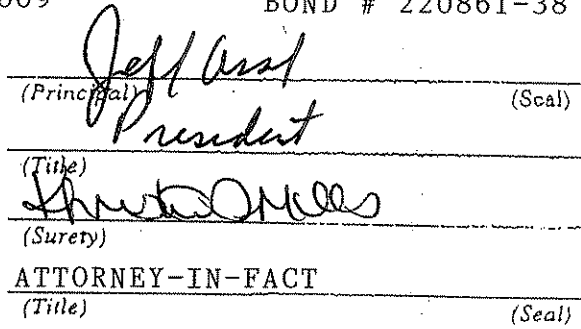 009 BOND # 220861-38
Jeff
(Principal) (Seal)
President
(Title)
(Surety)
ATTORNEY-IN-FACT
(Title) (Seal)